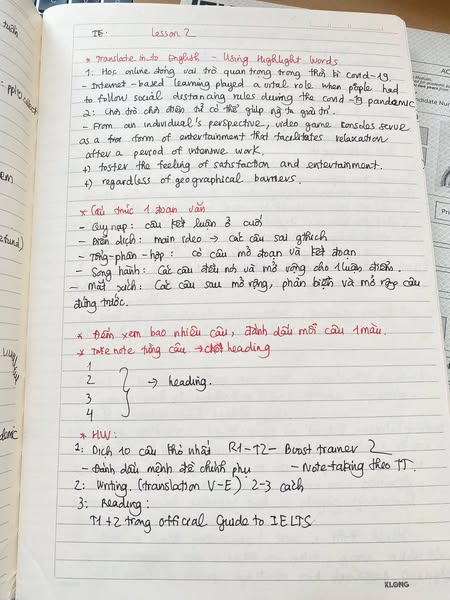 IE. Lesson 2
* Translate in to English – Using Highlight Words
1: Học online đóng vai trò quan trọng trong thời kì covid-19.
- Internet-based learning played a vital role when people had
to follow social distancing rules during the covid-19 pandemic
2: Chơi trò chơi điện tử có thể giúp ng ta giải trí.
- From an individual's perspective, video game consoles serve
as a form of entertainment that facilitates relaxation
after a period of intensive work.
+) foster the feeling of satisfaction and entertainment.
+) regardless of geographical barriers.
* Cấu trúc 1 đoạn văn
- Quy nạp: câu kết luận ở cuối
- Diễn dịch: main ideo → các câu sau gthích
- Tổng-phân-hợp: có câu mở đoạn và kết đoạn
- Song hành: Các câu đều nói và mở rộng cho 1 luận điểm.
- Mắt xích: Các câu sau mở rộng, phản biện và mở rộng câu
đứng trước.
* Đếm xem bao nhiêu câu, đánh dấu mỗi câu 1 màu.
* Take note từng câu → heading
1
2
3
4
→ heading.
* HW:
1: Dịch 10 câu khó nhất R1-T2- Boost trainer 2
- Đánh dấu mệnh đề chính phụ - Note-taking theo TT.
2: Writing. (translation V-E) 2-3 cách
3: Reading:
T1+2 trong official Guide to IELTS
KLONG